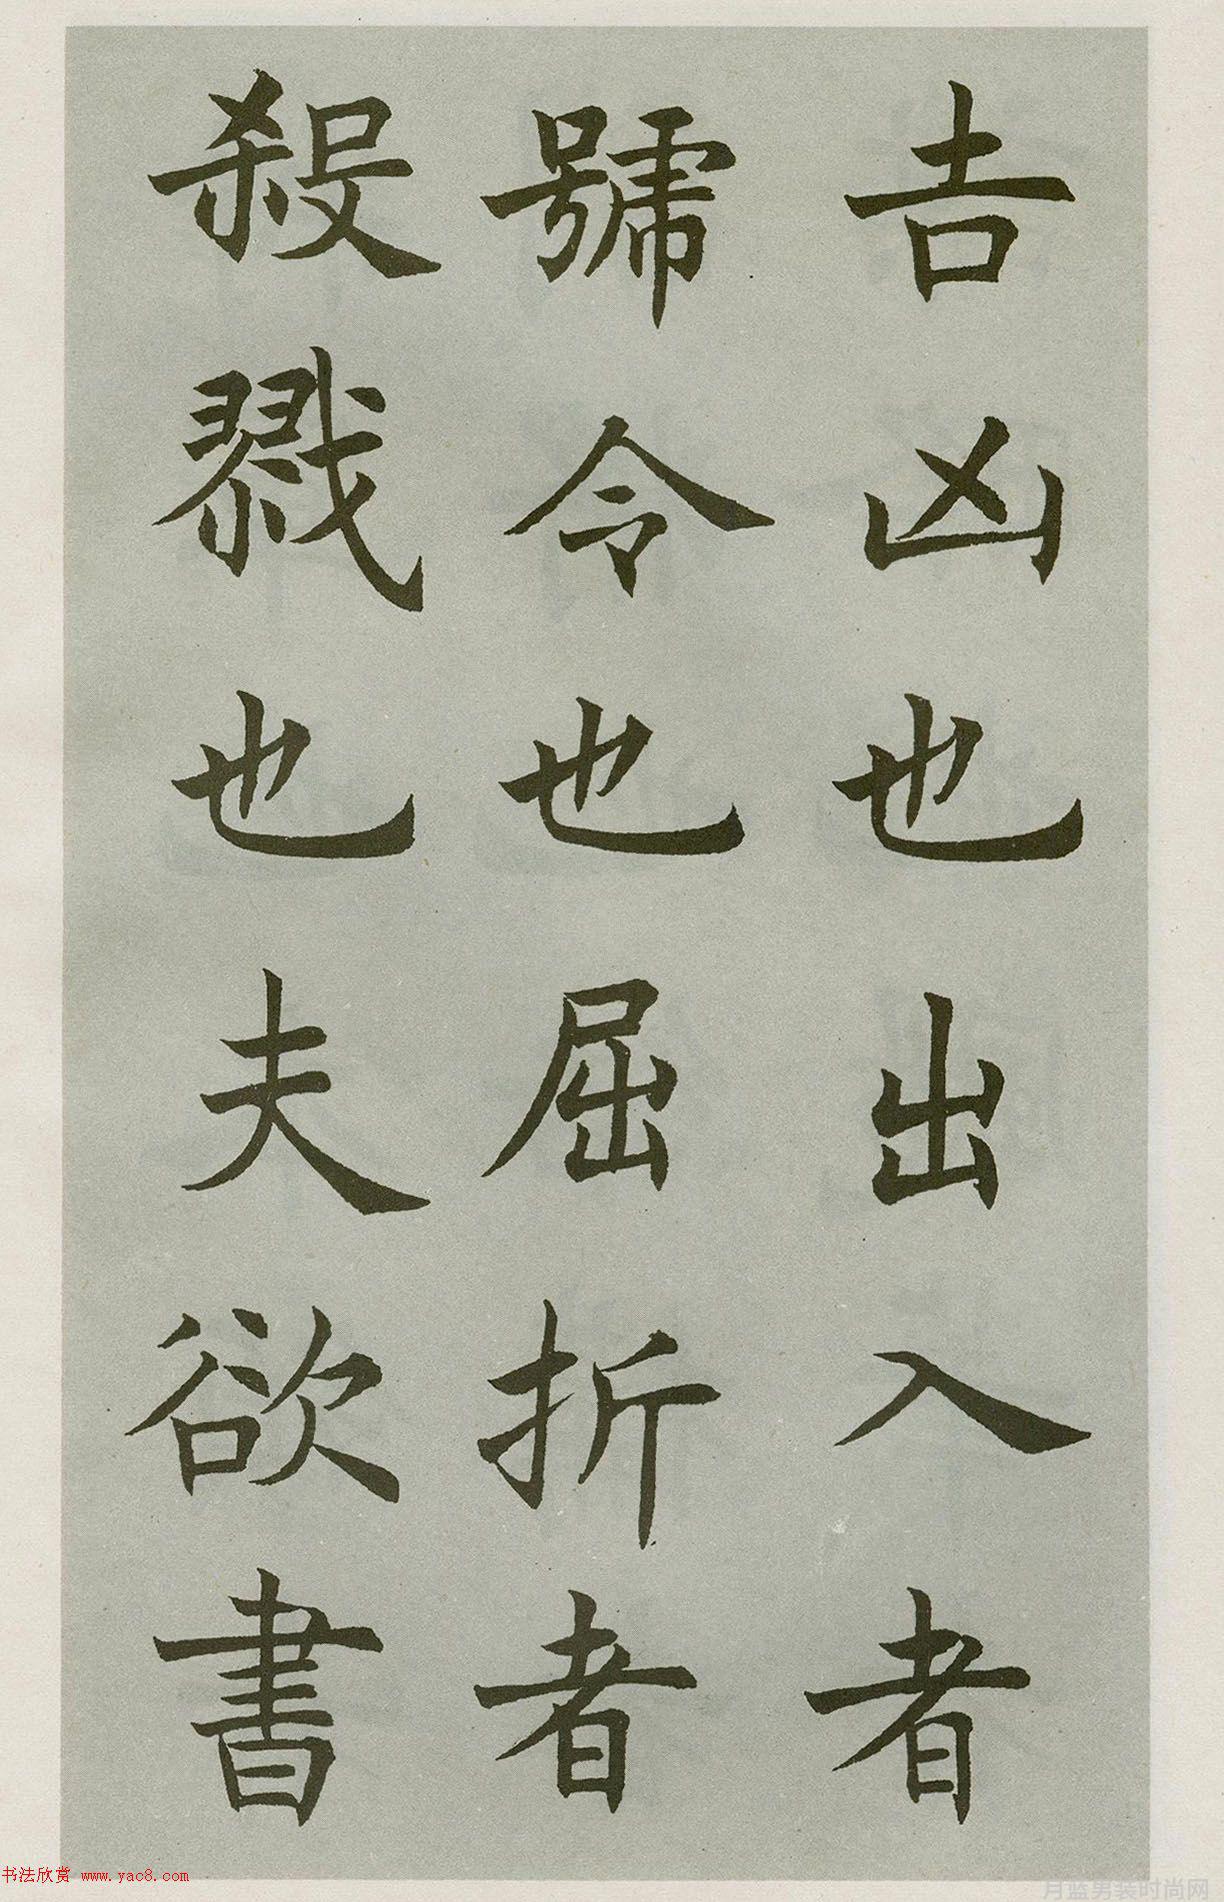 吉凶也出入者
號令也屈折者
殺戮也夫欲書
书法欣赏 www.yac8.com
月蓝男装时尚网